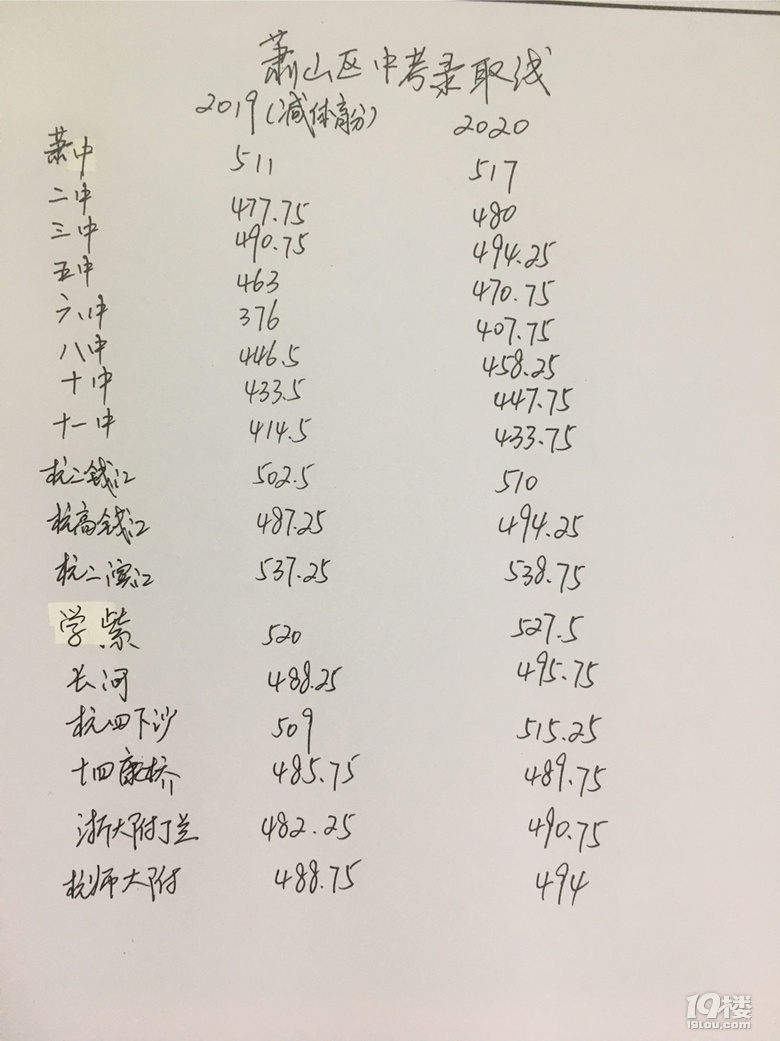 萧山区中考录取线
2019(减体育分) 2020
萧中 511 517
二中 477.75 480
三中 490.75 494.25
五中 463 470.75
六中 376 407.75
八中 446.5 458.25
十中 433.5 447.75
十一中 414.5 433.75
杭二钱江 502.5 510
杭高钱江 487.25 494.25
杭二滨江 537.25 538.75
学紫 520 527.5
长河 488.25 495.75
杭四下沙 509 515.25
十四康桥 485.75 489.75
浙大附丁兰 482.25 490.75
杭师大附 488.75 494
19楼
19lou.com